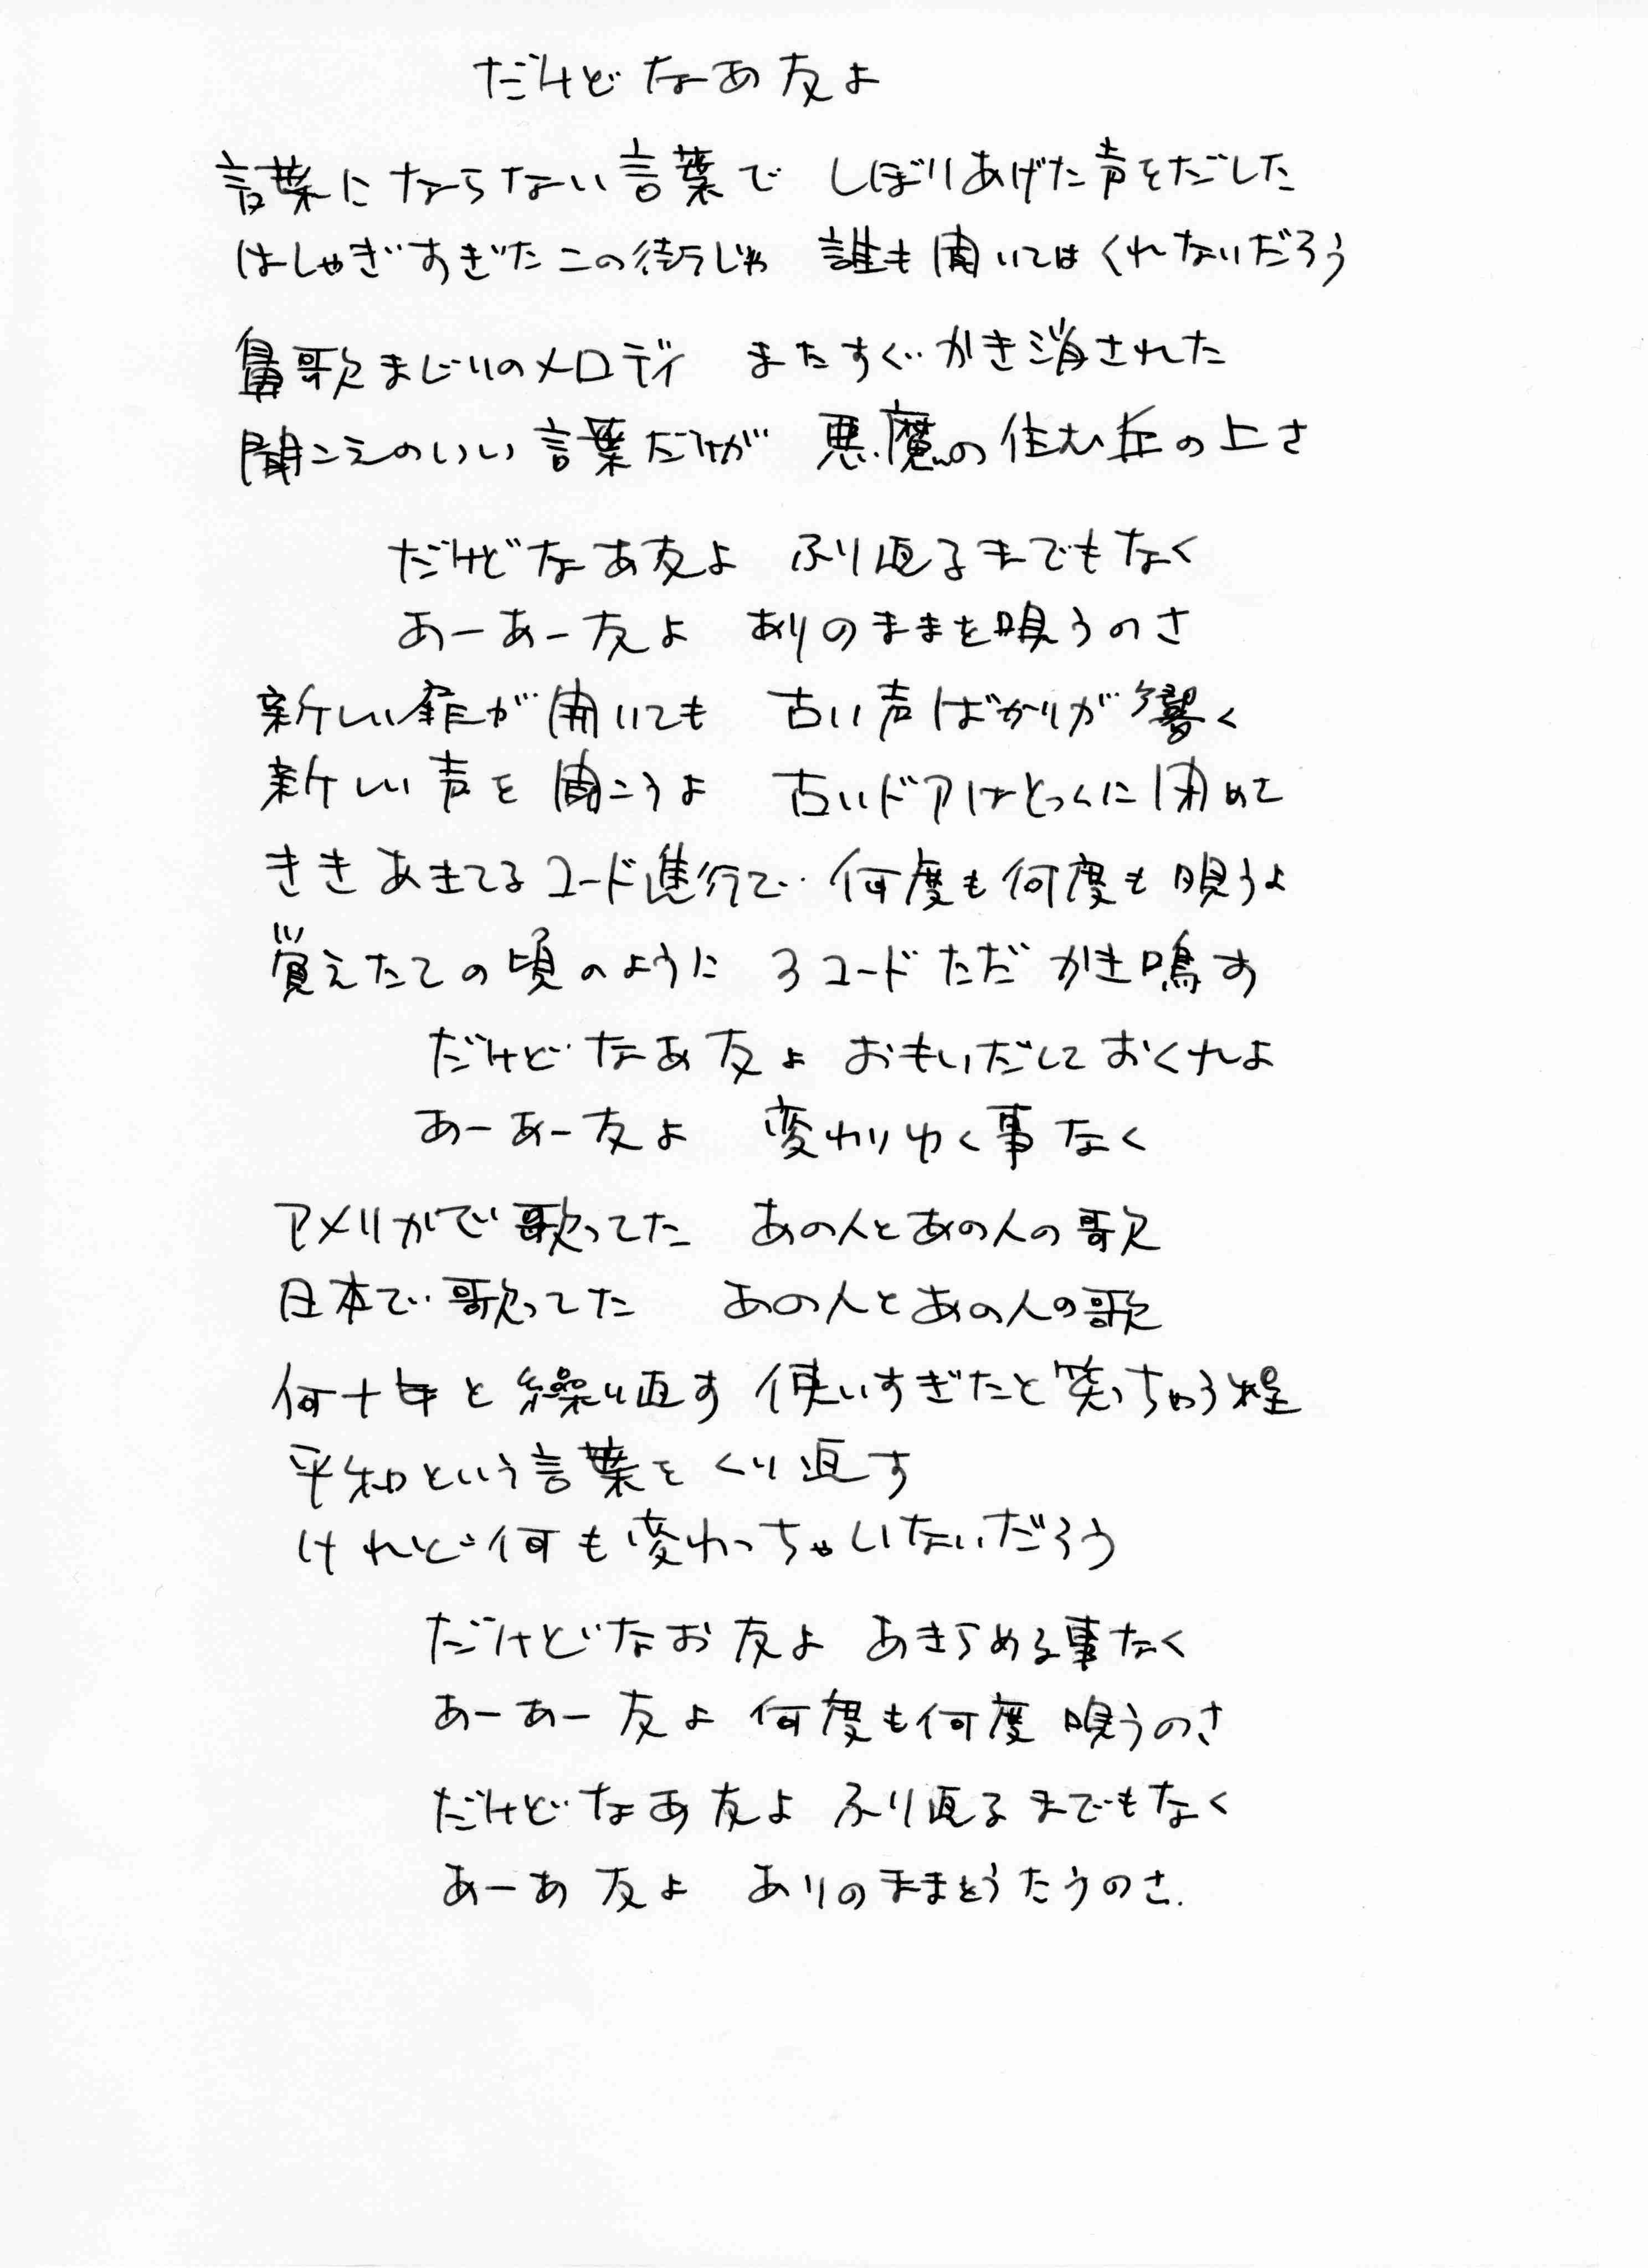 だけどなあ友よ
言葉にならない言葉で しぼりあげた声をだした
はしゃぎすぎたこの街じゃ 誰も聞いてはくれないだろう
鼻歌まじりのメロディ またすぐかき消された
聞こえのいい言葉だけが 悪魔の住む丘の上さ
だけどなあ友よ ふり返るまでもなく
あーあー友よ ありのままを唄うのさ
新しい扉が開いても 古い声ばかりが響く
新しい声を聞こうよ 古いドアはとっくに閉めて
ききあきてるコード進行で 何度も何度も唄うよ
覚えたての頃のように 3コードただかき鳴す
だけどなあ友よ おもいだしておくれよ
あーあー友よ 変わりゆく事なく
アメリカで歌ってた あの人とあの人の歌
日本で歌ってた あの人とあの人の歌
何十年と繰り返す 使いすぎたと笑っちゃう程
平和という言葉をくり返す
けれど何も変わっちゃいないだろう
だけどなお友よ あきらめる事なく
あーあー友よ 何度も何度唄うのさ
だけどなあ友よ ふり返るまでもなく
あーあ友よ ありのままをうたうのさ.